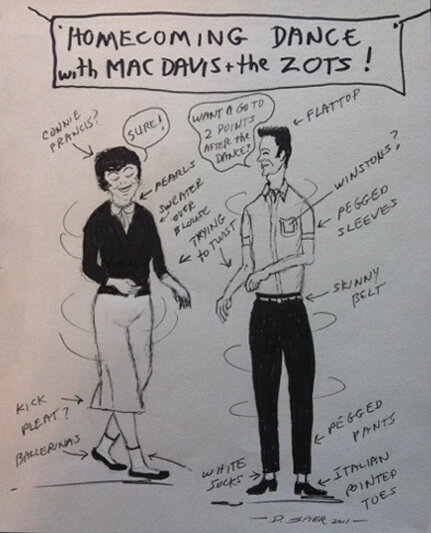 HOMECOMING DANCE
with MAC DAVIS + the ZOTS!
CONNIE
FRANCIS?
SURE!
WANT A GO TO
2 POINTS
AFTER the
DANCE?
FLATTOP
PEARLS
SWEATER
OVER
BLOUSE
TRYING
to TWIST
WINSTONS?
PEGGED
SLEEVES
SKINNY
BELT
KICK
PLEAT?
BALLERINAS
PEGGED
PANTS
WHITE
SOCKS
ITALIAN
POINTED
TOES
- D. SPIER 2011 -